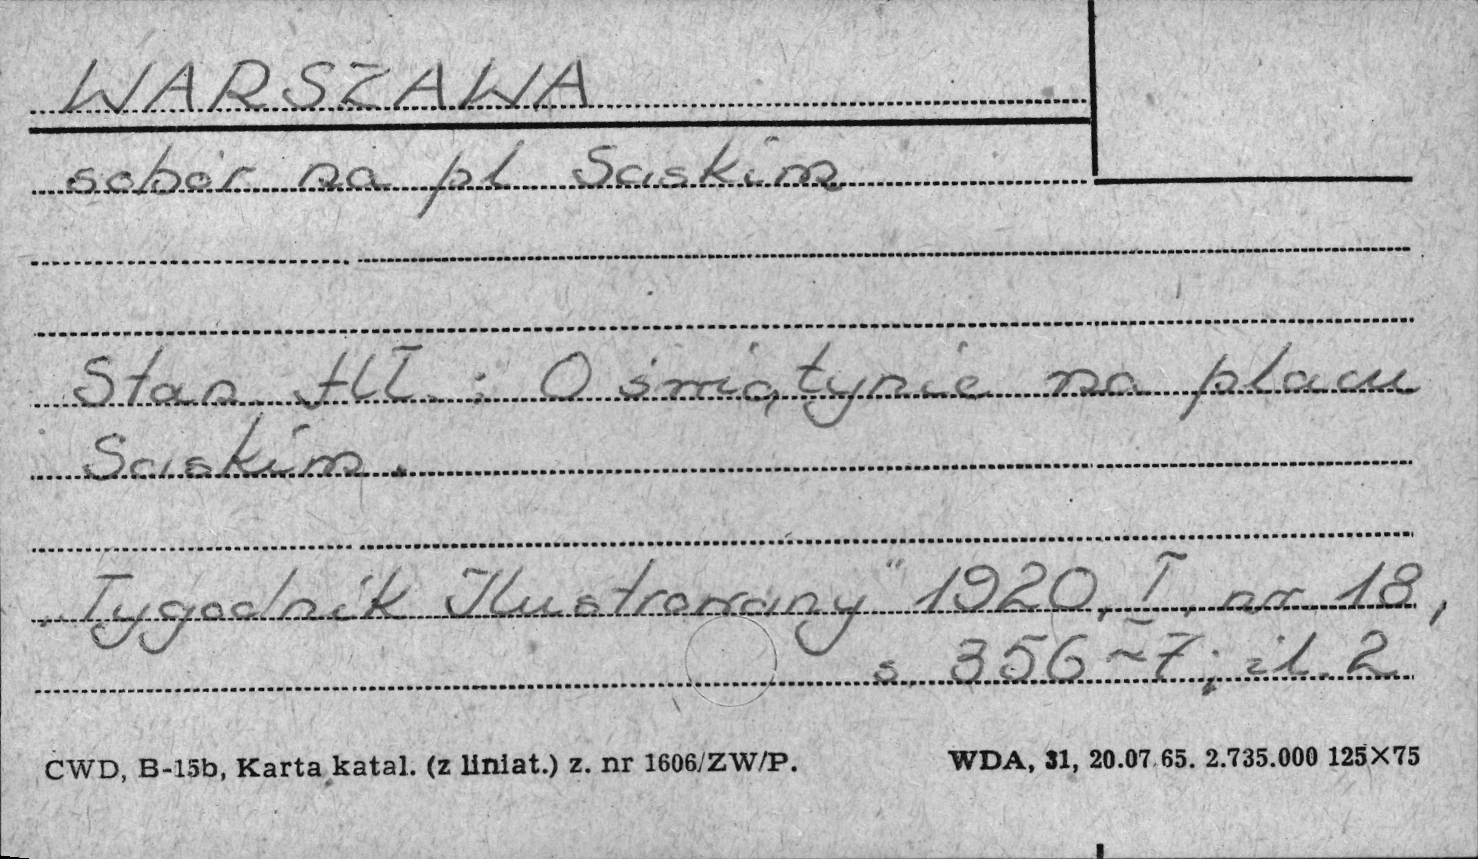 WARSZAWA
sobór na pl Saskim
Stan. HŁ. : O świątynię na placu
Saskim.
„Tygodnik Ilustrowany" 1920, I, nr. 18,
s. 356-7; il. 2
CWD, B-15b, Karta katal. (z liniat.) z. nr 1606/ZW/P.
WDA, 31, 20.07.65. 2.735.000 125×75